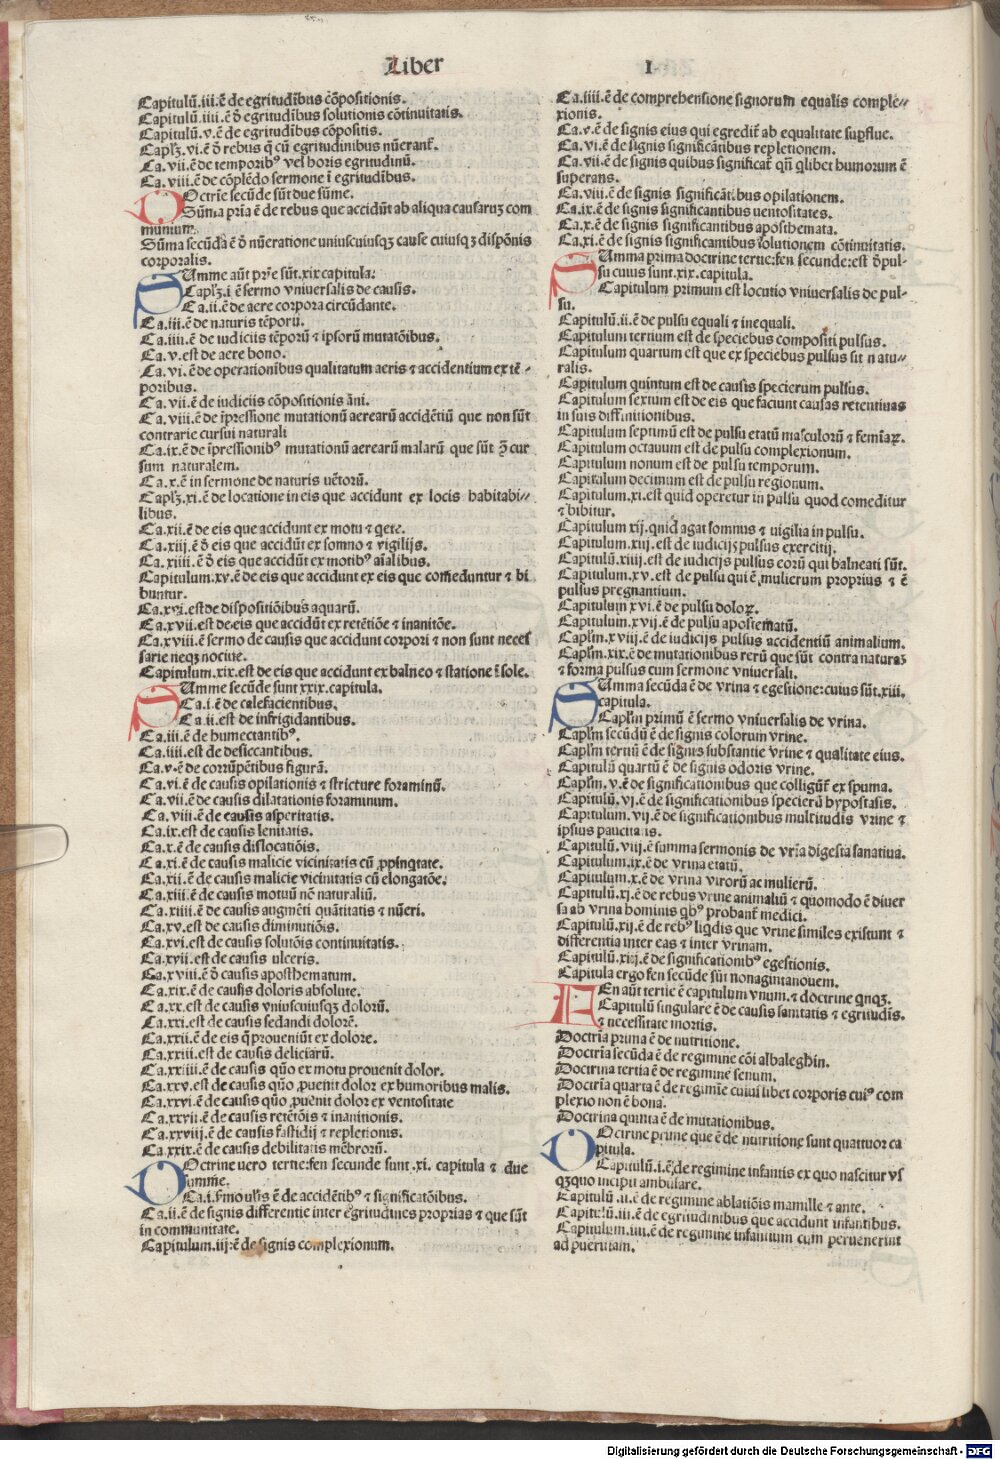 Liber I
Capitulū.iii.ē de egritudībus cōpositionis.
Capitulū.iiii.ē ō egritudībus solutionis cōtinuitatis.
Capitulū.v.ē de egritudībus cōpositis.
Caplꝫ.vi.ē ō rebus q̄ cū egritudinibus nūerant̄.
Ca.vii.ē de temporibꝰ vel horis egritudinū.
Ca.viii.ē de cōplēdo sermone ī egritudībus.
DOctrīe secūde sūt due sūme.
Sūma prīa ē de rebus que accidūt ab aliqua causaruꝫ com
munium.
Sūma secūda ē ō nūeratione uniuscuiusqꝫ cause cuiusqꝫ dispōnis
corporalis.
SUmme aūt prīe sūt.xix capitula:
Caplꝫ.i ē sermo vniuersalis de causis.
Ca.ii.ē de aere corpora circūdante.
Ca.iii.ē de naturis tēporū.
Ca.iiii.ē de iudiciis tēporū ⁊ ipsorū mutatōibus.
Ca.v.est de aere bono.
Ca.vi.ē de operationibus qualitatum aeris ⁊ accidentium ex tē-
poribus.
Ca.vii.ē de iudiciis cōpositionis āni.
Ca.viii.ē de īpressione mutationū aerearū accidētiū que non sūt
contrarie cursui naturali
Ca.ix.ē de īpressionibꝰ mutationū aerearū malarū que sūt ꝯ̄ cur
sum naturalem.
Ca.x.ē in sermone de naturis uētorū.
Caplꝫ.xi.ē de locatione in eis que accidunt ex locis habitabi-
libus.
Ca.xii.ē de eis que accidunt ex motu ⁊ q̇ete.
Ca.xiij.ē ō eis que accidūt ex somno ⁊ vigilijs.
Ca.xiiii.ē ō eis que accidūt ex motibꝰ aīalibus.
Capitulum.xv.ē de eis que accidunt ex eis que comeduntur ⁊ bi
buntur.
Ca.xvi.est de dispositiōibus aquarū.
Ca.xvii.est de eis que accidūt ex retētiōe ⁊ inanitōe.
Ca.xviii.ē sermo de causis que accidunt corpori ⁊ non sunt neces
sarie neqꝫ nociue.
Capitulum.xix.est de eis que accidunt ex balneo ⁊ statione ī sole.
SUmme secūde sunt xxix.capitula.
Ca.i.ē de calefacientibus.
Ca.ii.est de infrigidantibus.
Ca.iii.ē de humectantibꝰ.
Ca.iiii.est de desiccantibus.
Ca.v.ē de corrūpētibus figurā.
Ca.vi.ē de causis opilationis ⁊ stricture foraminū.
Ca.vii.ē de causis dilatationis foraminum.
Ca.viii.ē de causis asperitatis.
Ca.ix.est de causis lenitatis.
Ca.x.ē de causis dislocatiōis.
Ca.xi.ē de causis malicie vicinitatis cū ꝓpinq̄tate.
Ca.xii.ē de causis malicie vicinitatis cū elongatōe.
Ca.xiii.ē de causis motuū nō naturaliū.
Ca.xiiii.ē de causis augmēti quātitatis ⁊ nūeri.
Ca.xv.est de causis diminutiōis.
Ca.xvi.est de causis solutōis continuitatis.
Ca.xvii.est de causis ulceris.
Ca.xviii.ē ō causis aposthematum.
Ca.xix.ē de causis doloris absolute.
Ca.xx.est de causis vniuscuiusqꝫ dolorū.
Ca.xxi.est de causis sedandi dolorē.
Ca.xxii.ē de eis q̄ proueniūt ex dolore.
Ca.xxiii.est de causis deliciarū.
Ca.xxiiii.ē de causis quō ex motu prouenit dolor.
Ca.xxv.est de causis quō ꝓuenit dolor ex humoribus malis.
Ca.xxvi.ē de causis quō ꝓuenit dolor ex ventositate
Ca.xxvii.ē de causis retētōis ⁊ inanitionis.
Ca.xxviij.ē de causis fastidij ⁊ repletionis.
Ca.xxix.ē de causis debilitatis mēbrorū.
DOctrine uero tertie:fen secunde sunt.xi. capitula ⁊ due
summe.
Ca.i. ē de accidētibꝰ ⁊ significatōibus.
Ca.ii.ē de signis differentie inter egritudines proprias ⁊ que sūt
in communitate.
Capitulum.iij:ē de signis complexionum.
Ca.iiii.ē de comprehensione signorum equalis comple-
xionis.
Ca.v.ē de signis eius qui egredit̄ ab equalitate suꝑflue.
Ca.vi.ē de signis significātibus repletionem.
Ca.vii.ē de signis quibus significat̄ qn̄ qlibet humorum ē
superans.
Ca.viii.ē de signis significātibus opilationem.
Ca.ix.ē de signis significantibus uentositates.
Ca.x.ē de signis significantibus aposthemata.
Ca.xi.ē de signis significantibus solutionem cōtinuitatis.
SUmma prima doctrine tertie:fen secunde:est ō pul-
su cuius sunt.xix.capitula.
Capitulum primum est locutio vniuersalis de pul-
su.
Capitulū.ii.ē de pulsu equali ⁊ inequali.
Capitulum tertium est de speciebus compositi pulsus.
Capitulum quartum est que ex speciebus pulsus sit natu-
ralis.
Capitulum quintum est de causis specierum pulsus.
Capitulum sextum est de eis que faciunt causas retentiuas
in suis diffinitionibus.
Capitulum septimū est de pulsu etatū masculorū ⁊ femīaꝝ.
Capitulum octauum est de pulsu complexionum.
Capitulum nonum est de pulsu temporum.
Capitulum decimum est de pulsu regionum.
Capitulum.xi.est quid operetur in pulsu quod comeditur
⁊ bibitur.
Capitulum xij.quid agat somnus ⁊ uigilia in pulsu.
Capitulum.xiij.est de iudicijs pulsus exercitij.
Capitulū.xiiij.est de iudicijs pulsus eorū qui balneati sūt.
Capitulum.xv.est de pulsu qui ē mulierum proprius ⁊ ē
pulsus pregnantium.
Capitulum xvi.ē de pulsu doloꝝ.
Capitulum.xvij.ē de pulsu apostematū.
Caplm.xviij.ē de iudicijs pulsus accidentiū animalium.
Caplm.xix.ē de mutationibus rerū que sūt contra naturaꝫ
⁊ forma pulsus cum sermone vniuersali.
SUmma secūda ē de vrina ⁊ egestione:cuius sūt.xiii.
capitula.
Caplm primū ē sermo vniuersalis de vrina.
Caplm secūdū ē de signis colorum vrine.
Caplm tertiū ē de signis substantie vrine ⁊ qualitate eius.
Capitulū quartū ē de signis odoris vrine.
Caplm.v.ē de significationibus que colligūt̄ ex spuma.
Capitulū.vj.ē de significationibus specierū hypostasis.
Capitulum.vij.ē de significationibus multitudīs vrine ⁊
ipsius paucitatis.
Capitulū.viij.ē summa sermonis de vrīa digesta sanatiua.
Capitulum.ix.ē de vrina etatū.
Capitulum.x.ē de vrina virorū ac mulierū.
Capitulū.xj.ē de rebus vrine animaliū ⁊ quomodo ē diuer
sa ab vrina hominis qbꝰ probant̄ medici.
Capitulū.xij.ē de rebꝰ liq̇dis que vrine similes existunt ⁊
differentia inter eas ⁊ inter vrinam.
Capitulū.xiij.ē de significationibꝰ egestionis.
Capitula ergo fen secūde sūt nonagintanouem.
FEn aūt tertie ē capitulum vnum.⁊ doctrine q̇nqꝫ.
Capitulū singulare ē de causis sanitatis ⁊ egritudīs.
⁊ necessitate mortis.
Doctrīa prima ē de nutritione.
Doctrīa secūda ē de regimine cōi albaleghin.
Doctrina tertia ē de regimine senum.
Doctrīa quarta ē de regimīe cuiuslibet corporis cuiꝰ com
plexio non ē bona.
Doctrina quinta ē de mutationibus.
DOctrine prime que ē de nutritione sunt quattuor ca
pitula.
Capitulū.i.ē de regimine infantis ex quo nascitur vs
qꝫquo incipit ambulare.
Capitulū.ii.ē de regimine ablatiōis mamille ⁊ ante.
Capitulū.iii.ē de egritudinibus que accidunt infantibus.
Capitulum.iiii.ē de regimine infantium cum peruenerint
ad pueritiam.
Digitalisierung gefördert durch die Deutsche Forschungsgemeinschaft - DFG